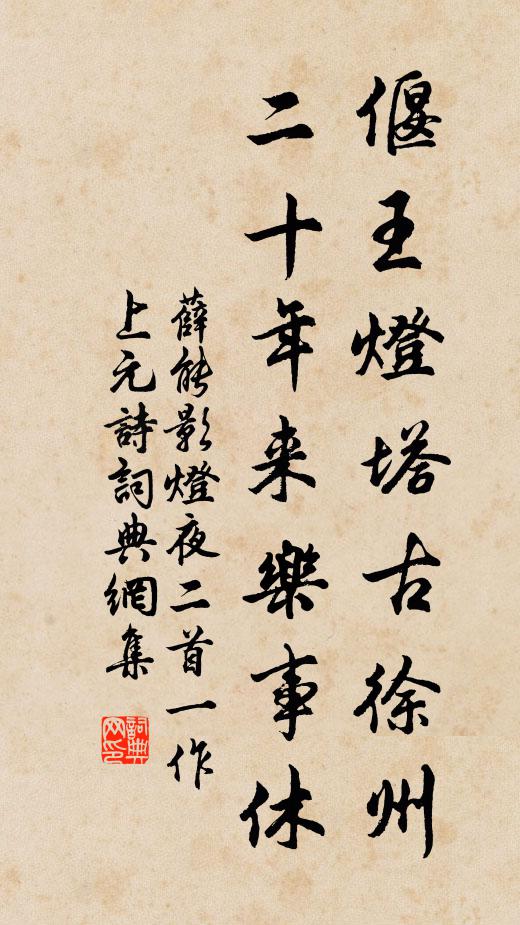 偃王燈塔古徐州
二十年来樂事休
薛能影燈夜二首一作
上元詩詞典網集
詞典网印